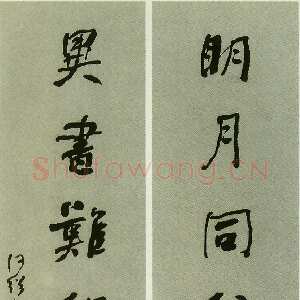 明月同
異書難
Shufawang.CN